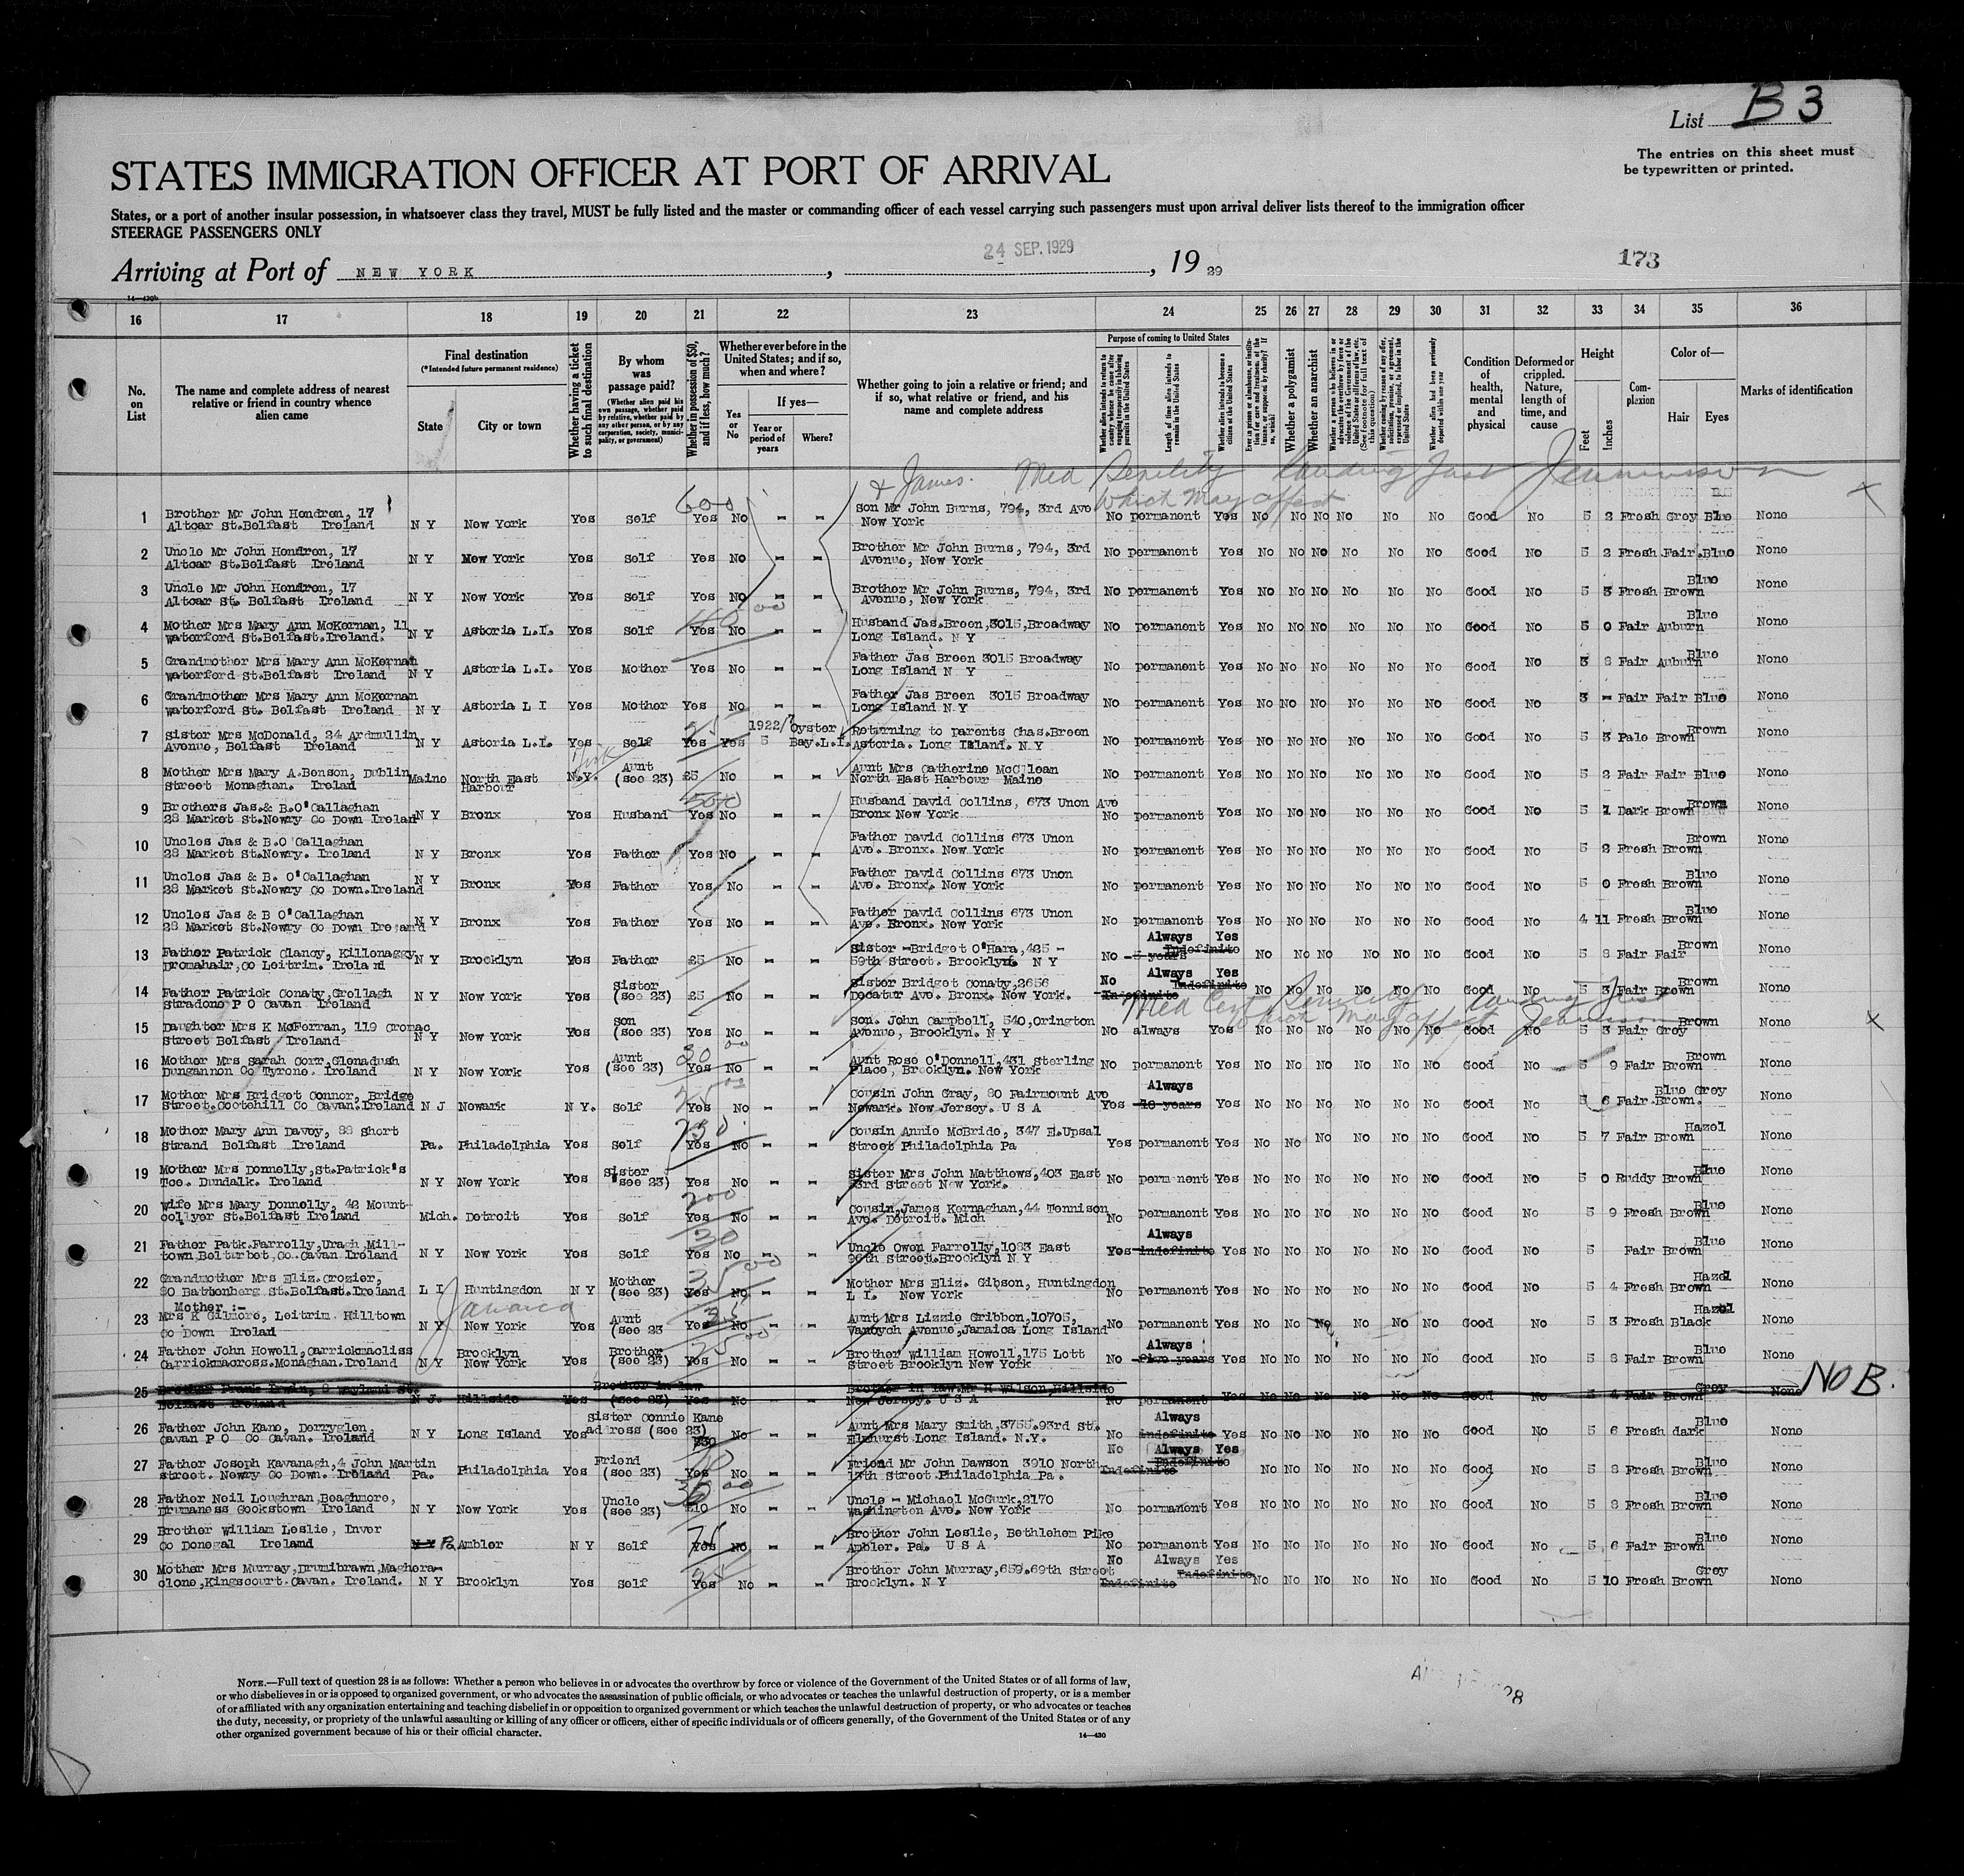 List B 3
The entries on this sheet must
be typewritten or printed.
STATES IMMIGRATION OFFICER AT PORT OF ARRIVAL
States, or a port of another insular possession, in whatsoever class they travel, MUST be fully listed and the master or commanding officer of each vessel carrying such passengers must upon arrival deliver lists thereof to the immigration officer
STEERAGE PASSENGERS ONLY
24 SEP. 1929
Arriving at Port of NEW YORK , , 19 29
173
14—430b
16 17 18 19 20 21 22 23 24 25 26 27 28 29 30 31 32 33 34 35 36
No. on List
The name and complete address of nearest relative or friend in country whence alien came
Final destination
(*Intended future permanent residence)
State
City or town
Whether having a ticket to such final destination
By whom was passage paid?
(Whether alien paid his own passage, whether paid by relative, whether paid by any other person, or by any corporation, society, municipality, or government)
Whether in possession of $50, and if less, how much?
Whether ever before in the United States; and if so, when and where?
Yes or No
If yes—
Year or period of years
Where?
Whether going to join a relative or friend; and if so, what relative or friend, and his name and complete address
Purpose of coming to United States
Length of time alien intends to remain in the United States
Whether alien intends to become a citizen of the United States
Whether a polygamist
Whether an anarchist
Condition of health, mental and physical
Deformed or crippled. Nature, length of time, and cause
Height
Feet
Inches
Complexion
Color of—
Hair
Eyes
Marks of identification
& James. Med Senility
which may affect
1 Brother Mr John Hendron, 17 Altcar St.Belfast Ireland N Y New York Yes Self 600 Yes No - - Son Mr John Burns, 794, 3rd Ave New York No permanent Yes No No No No No No Good No 5 2 Fresh Grey Blue None
2 Uncle Mr John Hendron, 17 Altcar St.Belfast Ireland N Y New York Yes Self Yes No - - Brother Mr John Burns, 794, 3rd Avenue, New York No permanent Yes No No No No No No Good No 5 2 Fresh Fair Blue None
3 Uncle Mr John Hendron, 17 Altcar St. Belfast Ireland N Y New York Yes Self Yes No - - Brother Mr John Burns, 794, 3rd Avenue, New York No permanent Yes No No No No No No Good No 5 3 Fresh Brown Blue None
4 Mother Mrs Mary Ann McKernan, 11 Waterford St.Belfast.Ireland. N Y Astoria L.I. Yes Self Yes No - - Husband Jas.Breen,3015,Broadway Long Island. N Y No permanent Yes No No No No No No Good No 5 0 Fair Auburn Blue None
5 Grandmother Mrs Mary Ann McKernan Waterford St.Belfast Ireland N Y Astoria L.I. Yes Mother Yes No - - Father Jas Breen 3015 Broadway Long Island N Y No permanent Yes No No No No No No Good No 3 8 Fair Auburn Blue None
6 Grandmother Mrs Mary Ann McKernan Waterford St. Belfast Ireland N Y Astoria L I Yes Mother Yes No - - Father Jas Breen 3015 Broadway Long Island N.Y No permanent Yes No No No No No No Good No 3 - Fair Fair Blue None
7 Sister Mrs McDonald, 24 Ardmullin Avenue, Belfast Ireland N Y Astoria L.I. Yes Self 25 Yes Yes 1922/7 5 Oyster Bay.L.I. Returning to Parents Chas.Breen Astoria. Long Island. N.Y No permanent Yes No No No No No No Good No 5 3 Pale Brown Brown None
8 Mother Mrs Mary A.Benson, Dublin Street Monaghan. Irelan Maine North East Harbour N.Y. Aunt (see 23) £5 No - - Aunt Mrs Catherine McClean North East Harbour Maine No permanent Yes No No No No No No Good No 5 2 Fair Fair Blue None
9 Brothers Jas.& B.O'Callaghan 28 Market St.Newry Co Down Irelan N Y Bronx Yes Husband Yes No - - Husband David Collins, 673 Unon Ave Bronx New York No permanent Yes No No No No No No Good No 5 1 Dark Brown Brown None
10 Uncles Jas & B.O'Callaghan 28 Market St.Newry. Ireland N Y Bronx Yes Father Yes No - - Father David Collins 673 Unon Ave. Bronx. New York No permanent Yes No No No No No No Good No 5 2 Fresh Brown Brown None
11 Uncles Jas & B. O'Callaghan 28 Market St.Newry Co Down.Ireland N Y Bronx Yes Father Yes No - - Father David Collins 673 Unon Ave. Bronx. New York No permanent Yes No No No No No No Good No 5 0 Fresh Brown Blue None
12 Uncles Jas & B O'Callaghan 28 Market St.Newry Co Down Ireland N Y Bronx Yes Father Yes No - - Father David Collins 673 Unon Ave. Bronx. New York No permanent Yes No No No No No No Good No 4 11 Fresh Brown Blue None
13 Father Patrick Clancy, Killonaggy Dromahair,Co Leitrim. Ireland N Y Brooklyn Yes Father £5 No - - Sister -Bridget O'Hara,425 - 59th Street. Brooklyn. N Y No 5 years Indefinite Always Yes No No No No No No Good No 5 8 Fair Fair Brown None
14 Father Patrick Conaty,Crollagh Stradone P O Cavan Ireland N Y New York Yes Sister (see 23) £5 No - - Sister Bridget Conaty,2656 Decatur Ave. Bronx. New York. Indefinite Indefinite No Always Yes No No No No No No Good No 5 3 Fair Brown Brown None
Med Cert Senility which may affect
15 Daughter Mrs K McFerran, 119 Cromac Street Belfast Ireland N Y New York Yes Son (see 23) Yes No - - Son. John Campbell, 540,Orington Avenue, Brooklyn. N Y No always Yes No No No No No No Good No 5 3 Fair Grey Brown None
16 Mother Mrs Sarah Corr,Glenadush Dungannon Co Tyrone. Ireland N Y New York Yes Aunt (see 23) 30 00 Yes No - - Aunt Rose O'Donnell,431 Sterling Place, Brooklyn. New York No permanent Yes No No No No No No Good No 5 9 Fair Brown Brown None
17 Mother Mrs Bridget Connor, Bridge Street.Cootehill Co Cavan.Ireland N J Newark N Y. Self 25 00 Yes No - - Cousin John Gray, 80 Fairmount Ave Newark. New Jersey. U S A Yes 10 years Always Yes No No No No No No Good No 5 6 Fair Brown. Blue Grey None
18 Mother Mary Ann Davey, 88 Short Strand Belfast Ireland Pa. Philadelphia Yes Self Yes No - - Cousin Annie McBride, 347 E.Upsal Street Philadelphia Pa Yes permanent Yes No No No No No No Good No 5 7 Fair Brown Hazel None
19 Mother Mrs Donnelly,St.Patrick's Tce. Dundalk. Ireland N Y New York Yes Sister (see 23) Yes No - - Sister Mrs John Matthews,403 East 73rd Street New York. No permanent Yes No No No No No No Good No 5 0 Ruddy Brown Blue None
20 Wife Mrs Mary Donnelly, 42 Mountcollyer St.Belfast Ireland Mich. Detroit Yes Self 200 Yes No - - Cousin,James Kernaghan,44 Tennison Ave. Detroit. Mich No permanent Yes No No No No No No Good No 5 9 Fresh Brown Blue None
21 Father Patk.Farrelly,Uragh,Milltown,Belturbet,Co.Cavan Ireland N Y New York Yes Self 30 Yes No - - Uncle Owen Farrelly,1083 East 96th Street.Brooklyn N Y Yes indefinite Always Yes No No No No No No Good No 5 Fair Brown Blue None
22 Grandmother Mrs Eliz.Crozier, 80 Battenberg St.Belfast.Ireland L I Huntingdon N Y Mother (see 23) 35 00 Yes No - - Mother Mrs Eliz. Gibson, Huntingdon L I. New York No permanent Yes No No No No No No Good No 5 4 Fresh Brown Hazel None
23 Mother :- Mrs K Gilmore, Leitrim Hilltown Co Down Irelan N Y New York Jamaica Yes Aunt (see 23 35 Yes No - - Aunt Mrs Lizzie Gribbon,10705, Vanoych Avenue,Jamaica Long Island No permanent Yes No No No No No No Good No 5 3 Fresh Black Hazel None
24 Father John Howell,Carrickmacliss Carrickmacross.Monaghan.Ireland N Y Brooklyn New York Yes Brother (see 23) 25 00 Yes No - - Brother William Howell,175 Lott Street Brooklyn New York No five years Always Yes No No No No No No Good No 5 8 Fair Brown Blue None
25 Brother Frank Irwin, 8 Wayland St. Belfast Ireland N J. Hillside Yes Brother in law (see 23) Yes No - - Brother in law.Mr H Wilson,Hillside New Jersey. U S A No permanent Yes No No No No No No Good No 5 4 Fair Brown Grey None NO B.
26 Father John Kane, Derryglen Cavan P O Co Cavan. Ireland N Y Long Island Yes Sister Connie Kane address (see 23) $30 No - - Aunt Mrs Mary Smith,3755.93rd St. Elmhurst Long Island. N.Y. No indefinite Always Yes No No No No No No Good No 5 6 Fresh dark Blue None
27 Father Joseph Kavanagh,4 John Martin Street. Newry Co Down. Ireland Pa. Philadelphia Yes Friend (see 23) Yes No - - Friend Mr John Dawson 3910 North 13th Street Philadelphia Pa. Indefinite Indefinite No Always Yes No No No No No No Good No 5 8 Fresh Brown Blue None
28 Father Neil Loughran,Beaghmore, Drumaness Cookstown Ireland N Y New York Yes Uncle (see 23) £10 No - - Uncle - Michael McGurk,2170 Washington Ave. New York No permanent Yes No No No No No No Good No 5 8 Fresh Brown Blue None
29 Brother William Leslie, Inver Co Donegal Ireland N Y Pa Ambler N Y Self 75 Yes No - - Brother John Leslie, Bethlehem Pike Ambler. Pa. U S A No permanent Yes No No No No No No Good No 5 6 Fair Brown Blue None
30 Mother Mrs Murray,Drumibrawn,Magheraclone,Kingscourt.Cavan. Ireland. N Y Brooklyn Yes Self 25 Yes No - - Brother John Murray,659.69th Street Brooklyn. N Y Indefinite Indefinite No Always Yes No No No No No No Good No 5 10 Fresh Brown Grey None
NOTE.—Full text of question 28 is as follows: Whether a person who believes in or advocates the overthrow by force or violence of the Government of the United States or of all forms of law,
or who disbelieves in or is opposed to organized government, or who advocates the assassination of public officials, or who advocates or teaches the unlawful destruction of property, or is a member
of or affiliated with any organization entertaining and teaching disbelief in or opposition to organized government or which teaches the unlawful destruction of property, or who advocates or teaches
the duty, necessity, or propriety of the unlawful assaulting or killing of any officer or officers, either of specific individuals or of officers generally, of the Government of the United States or of any
other organized government because of his or their official character.
14—430